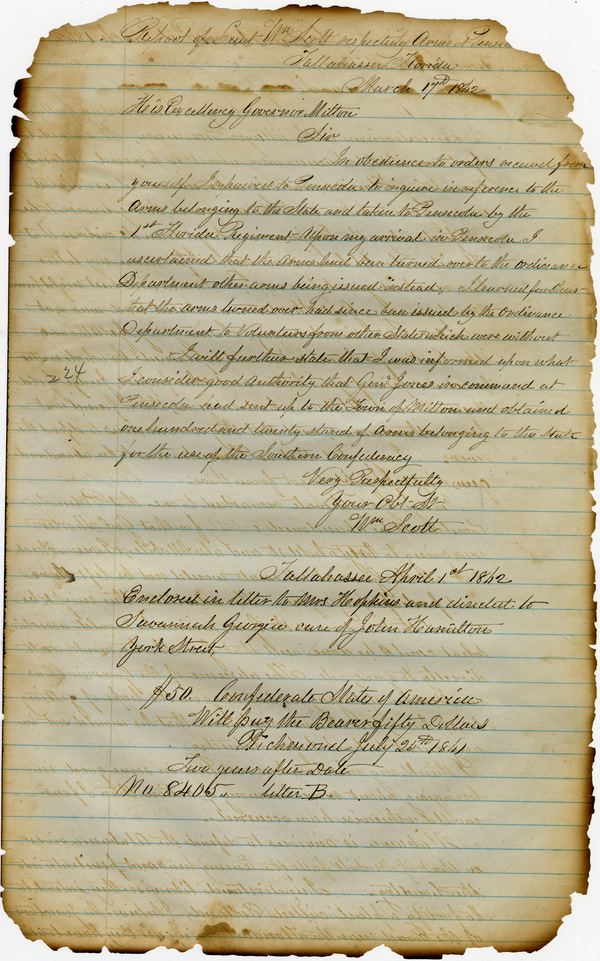 Report of Lieut Wm Scott respecting Arms at
Tallahassee Florida
March 17th 1862
His Excellency Governor Milton
Sir
In obedience to orders received from
yourself I repaired to Pensacola to inquire in reference to the
Arms belonging to the State and taken to Pensacola by the
1st Florida Regiment. Upon my arrival in Pensacola I
ascertained that the Arms had been turned over to the Ordinance
Department other arms being issued instead, I learned further
that the arms turned over had since been issued by the Ordinance
Department to Volunteers from other States which were without
I will further state that I was informed upon what
224
I consider good Authority that Genl Jones in command at
Pensacola had sent up to the Town of Milton and obtained
one hundred and twenty stand of Arms belonging to the State
for the use of the Southern Confederacy
Very Respectfully
Your Obt St
Wm Scott
Tallahassee April 1st 1862
Enclosed in letter to Mrs Hopkins and direct to
Savannah Georgia care of John Hamilton
York Street
$50. Confederate State of America
Will pay the Bearer fifty Dollars
Richmond July 25th 1861
Two years after Date
No 8405,, letter B.